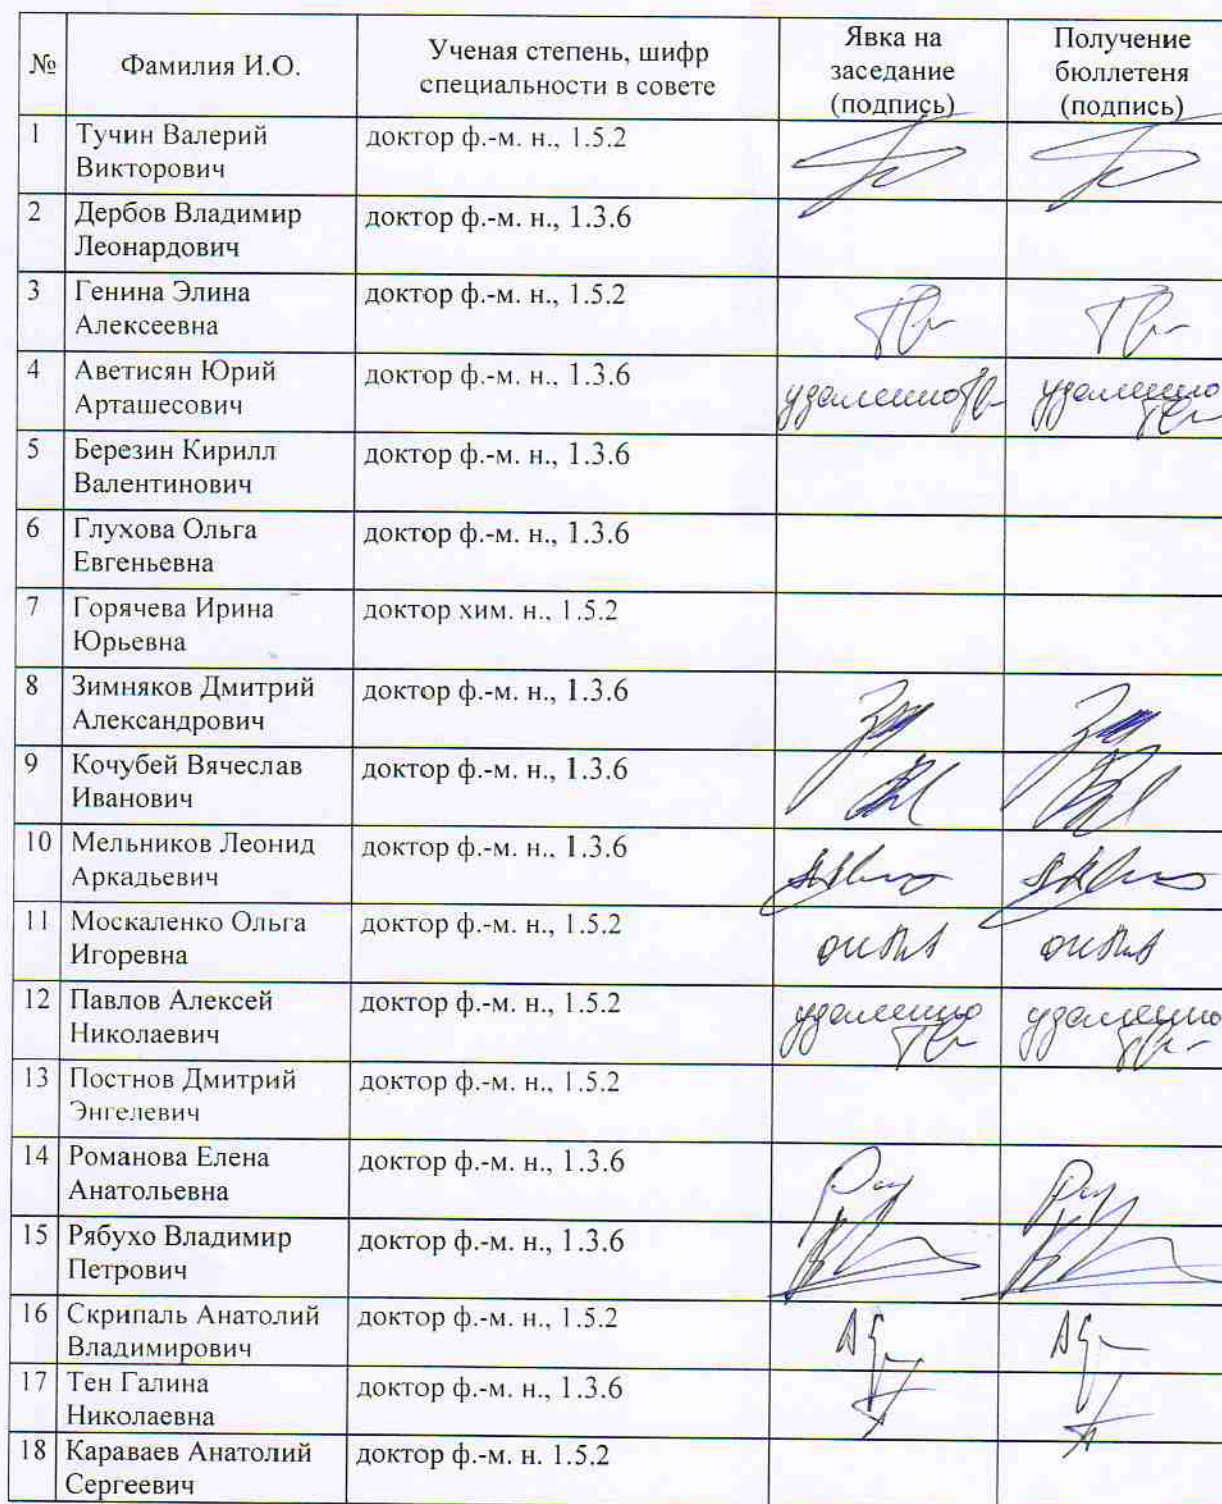 №
Фамилия И.О.
Ученая степень, шифр
специальности в совете
Явка на
заседание
(подпись)
Получение
бюллетеня
(подпись)
1
Тучин Валерий
Викторович
доктор ф.-м. н., 1.5.2
2
Дербов Владимир
Леонардович
доктор ф.-м. н., 1.3.6
3
Генина Элина
Алексеевна
доктор ф.-м. н., 1.5.2
4
Аветисян Юрий
Арташесович
доктор ф.-м. н., 1.3.6
удаленно
удаленно
5
Березин Кирилл
Валентинович
доктор ф.-м. н., 1.3.6
6
Глухова Ольга
Евгеньевна
доктор ф.-м. н., 1.3.6
7
Горячева Ирина
Юрьевна
доктор хим. н., 1.5.2
8
Зимняков Дмитрий
Александрович
доктор ф.-м. н., 1.3.6
9
Кочубей Вячеслав
Иванович
доктор ф.-м. н., 1.3.6
10
Мельников Леонид
Аркадьевич
доктор ф.-м. н., 1.3.6
11
Москаленко Ольга
Игоревна
доктор ф.-м. н., 1.5.2
12
Павлов Алексей
Николаевич
доктор ф.-м. н., 1.5.2
удаленно
удаленно
13
Постнов Дмитрий
Энгелевич
доктор ф.-м. н., 1.5.2
14
Романова Елена
Анатольевна
доктор ф.-м. н., 1.3.6
15
Рябухо Владимир
Петрович
доктор ф.-м. н., 1.3.6
16
Скрипаль Анатолий
Владимирович
доктор ф.-м. н., 1.5.2
17
Тен Галина
Николаевна
доктор ф.-м. н., 1.3.6
18
Караваев Анатолий
Сергеевич
доктор ф.-м. н. 1.5.2